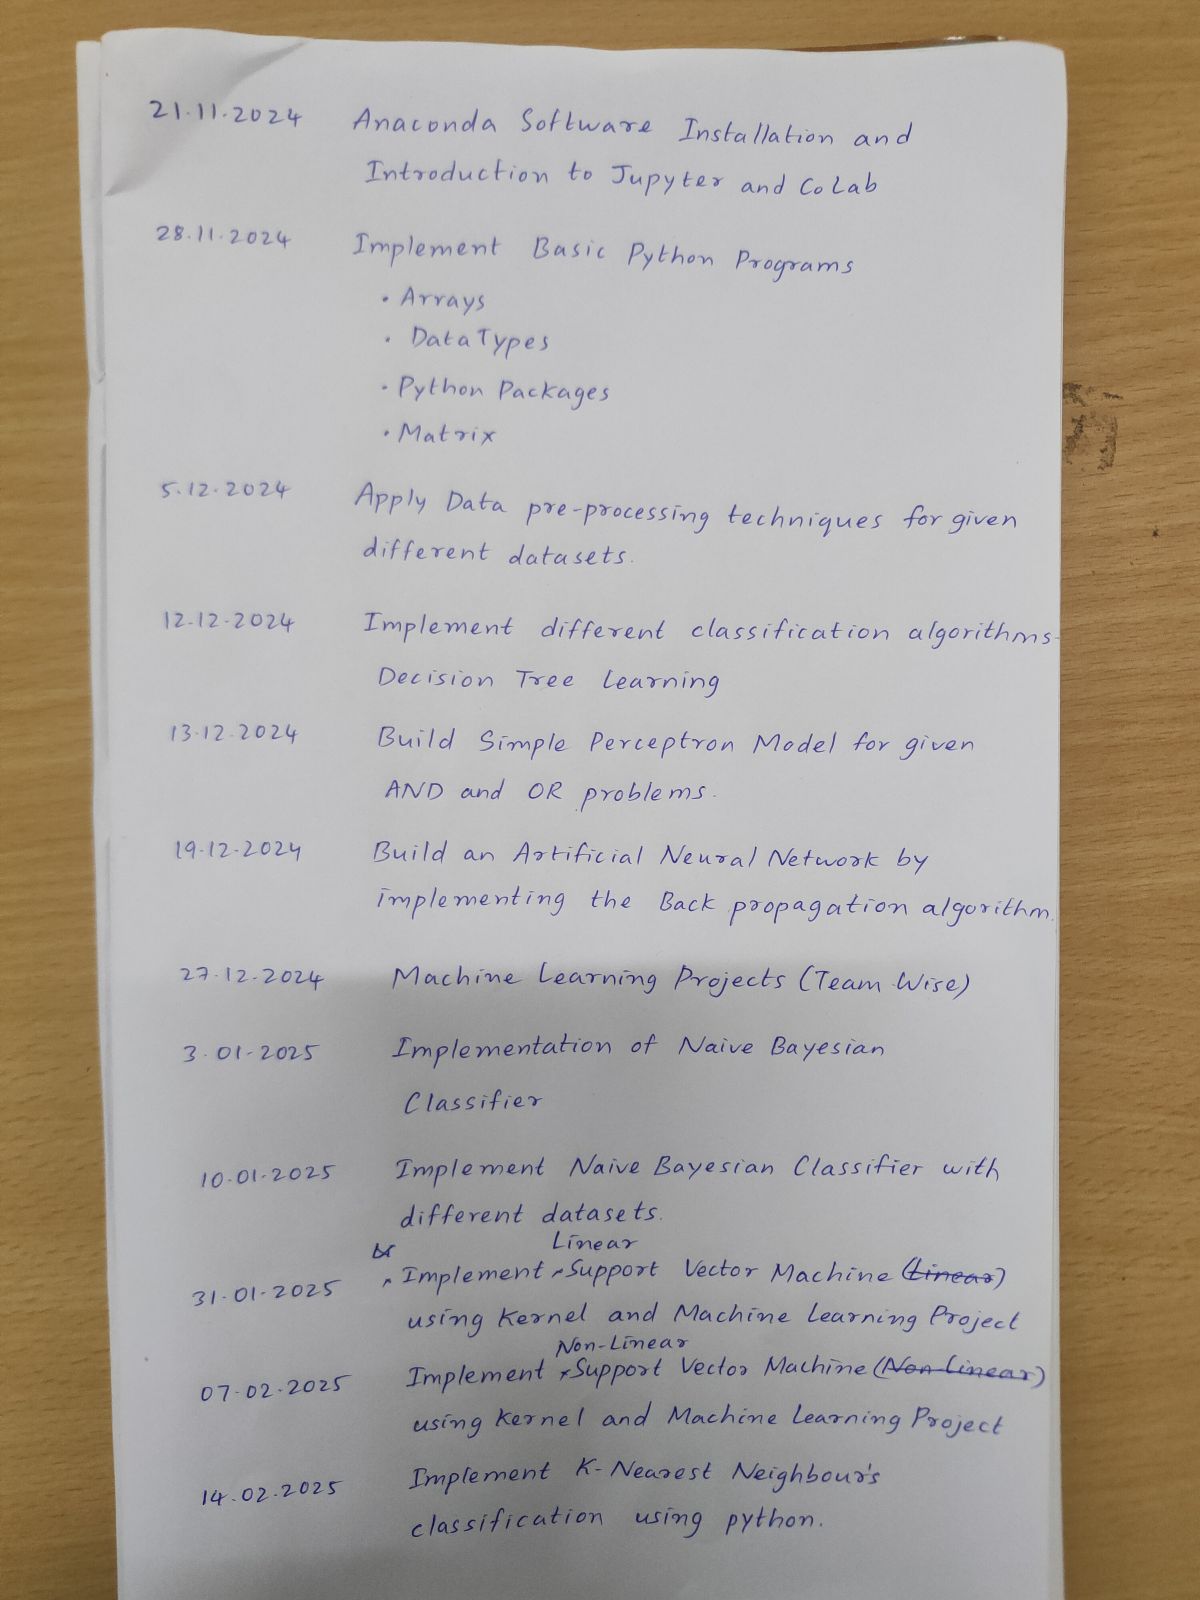 21.11.2024 Anaconda Software Installation and
Introduction to Jupyter and CoLab
28.11.2024 Implement Basic Python Programs
• Arrays
• Data Types
• Python Packages
• Matrix
5.12.2024 Apply Data pre-processing techniques for given
different datasets.
12.12.2024 Implement different classification algorithms-
Decision Tree Learning
13.12.2024 Build Simple Perceptron Model for given
AND and OR problems.
19.12.2024 Build an Artificial Neural Network by
implementing the Back propagation algorithm.
27.12.2024 Machine Learning Projects (Team Wise)
3.01.2025 Implementation of Naive Bayesian
Classifier
10.01.2025 Implement Naive Bayesian Classifier with
different datasets.
Linear
31.01.2025 Implement Support Vector Machine (Linear)
using Kernel and Machine Learning Project
Non-Linear
07.02.2025 Implement Support Vector Machine (Non Linear)
using Kernel and Machine Learning Project
14.02.2025 Implement K-Nearest Neighbour's
classification using python.